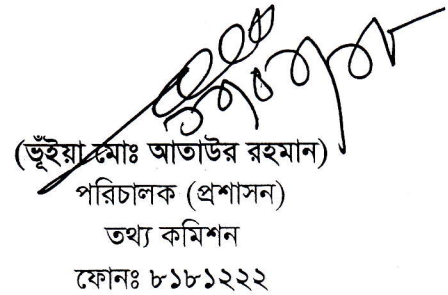 (ভূঁইয়া মোঃ আতাউর রহমান)
পরিচালক (প্রশাসন)
তথ্য কমিশন
ফোনঃ ৮১৮১২২২